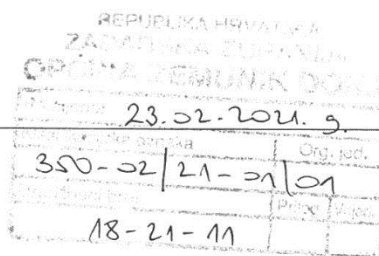 REPUBLIKA HRVATSKA
ZADARSKA ŽUPANIJA
OPĆINA ZEMUNIK DONJI
23.02.2021. g.
Org. jed.
350-02/21-01/01
18-21-11